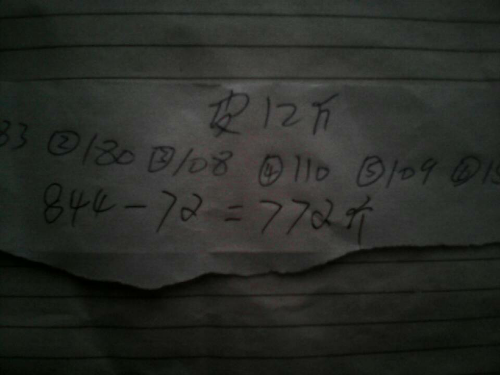 皮12斤
83 ②180 ③108 ④110 ⑤109 ⑥15
844-72=772斤